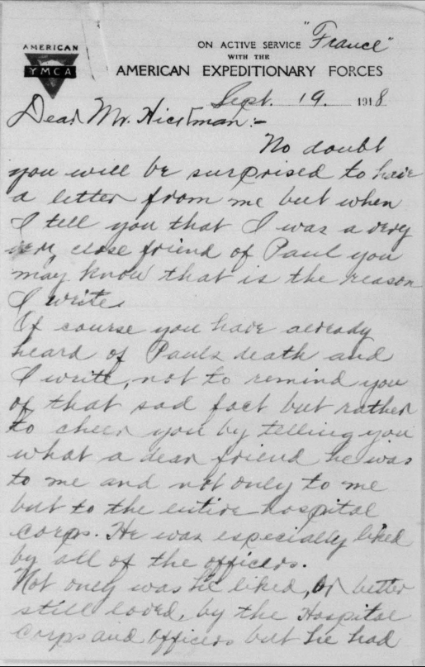 AMERICAN
YMCA
ON ACTIVE SERVICE "France"
WITH THE
AMERICAN EXPEDITIONARY FORCES
Sept. 19, 1918
Dear Mr. Hickman:-
No doubt
you will be surprised to have
a letter from me but when
I tell you that I was a very
very close friend of Paul you
may know that is the reason
I write.
Of course you have already
heard of Pauls death and
I write, not to remind you
of that sad fact but rather
to cheer you by telling you
what a dear friend he was
to me and not only to me
but to the entire hospital
corps. He was especially liked
by all of the officers.
Not only was he liked, or better
still loved, by the Hospital
Corps and officers but he had